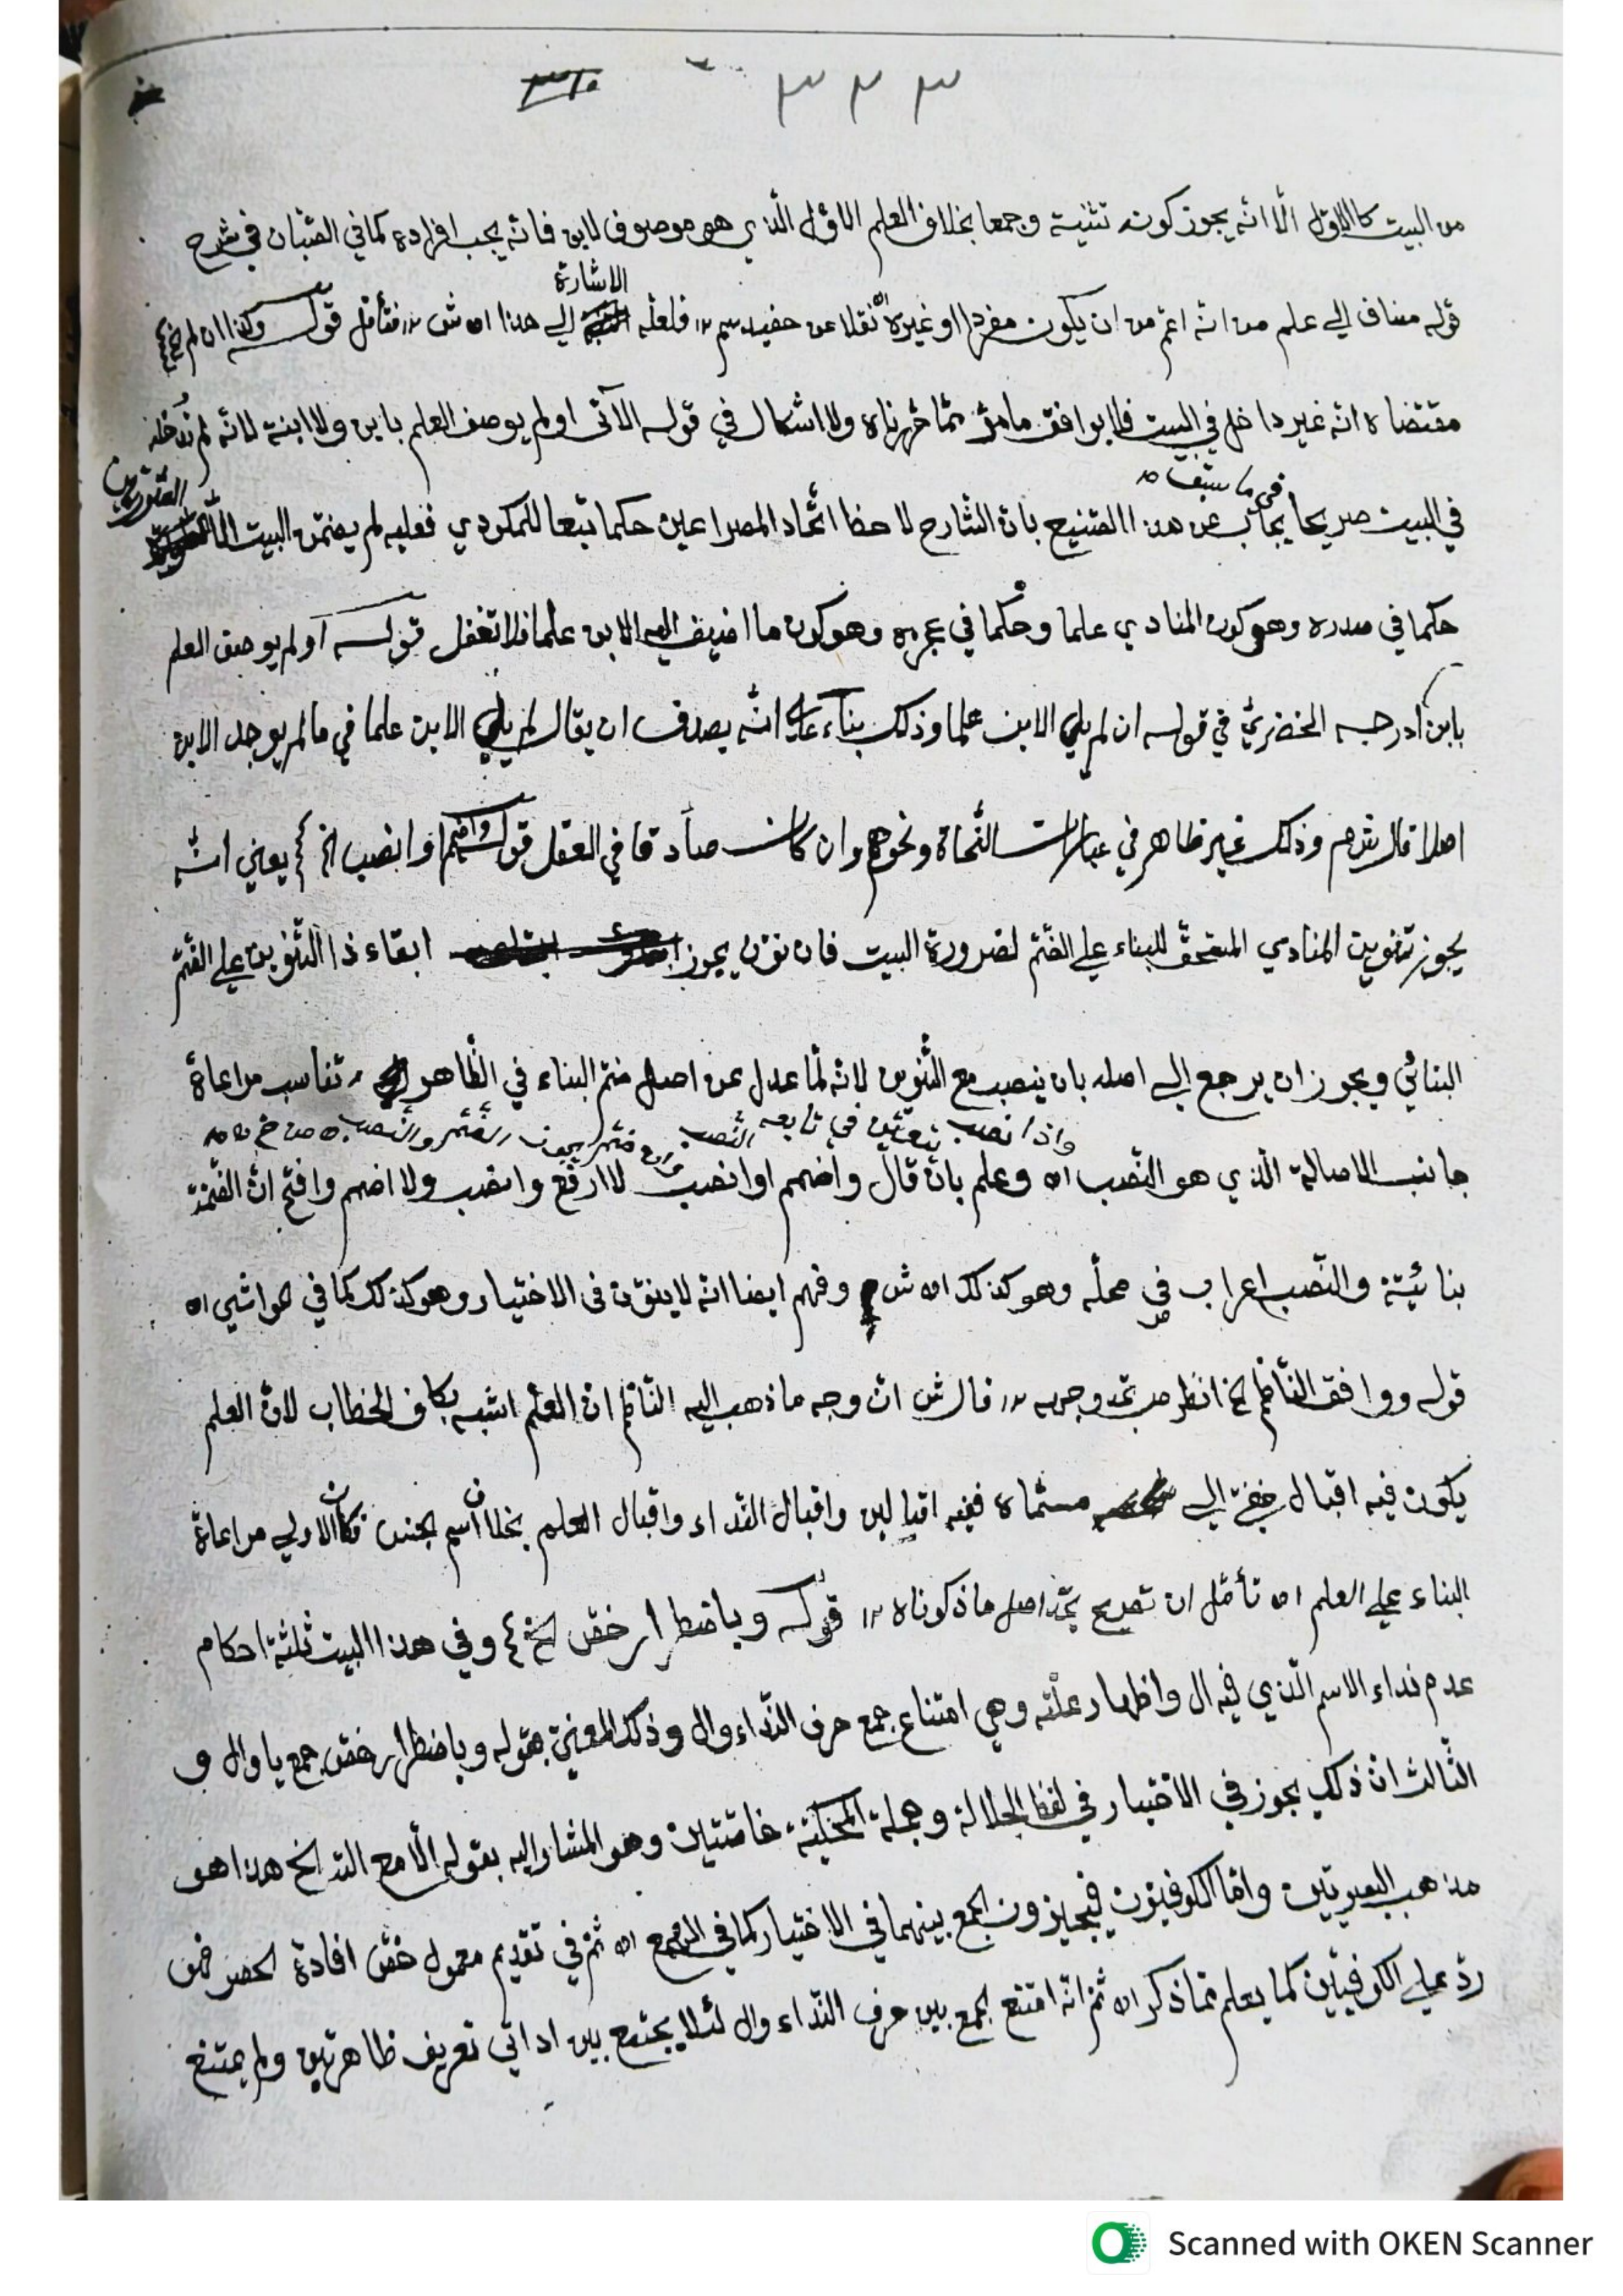 ٣٣٣
من البيت كالاول الا انه يجوز كونه تثنية وجمعا بخلاف العلم الاول الذي هو موصوف لابن فانه يجب افراده كما في الصبان في شرح
الاشارة
قوله مضاف الى علم من انه اعم من ان يكون مفردا او غيره نقلا عن حفيد سم ١٢ فلعله الى هذا اه ش ١٢ فتأمل قوله وكذا ان لم الخ
مقتضاه انه غير داخل في البيت فلا يوافق مامر مما حررناه ولا اشكال في قوله الآتى او لم يوصف العلم بابن ولا ابنة لانه لم تدخله
في ما سبق
في البيت صريحا يجاب عن هذا التشنيع بان الشارح لاحظ اتحاد المصراعين حكما تبعا للمكودي فعليه لم يضمن البيت الا الصورتين
حكما في صدره وهو كون المنادي علما وحكما في عجزه وهو كون ما اضيف اليه الابن علما فلا تغفل قوله او لم يوصف العلم
بابن ادرجه الخضري في قوله ان لم يلي الابن علما وذلك بناء على انه يصدق ان يقال لم يلي الابن علما في مالم يوجد الابن
اصلا قال شرم وذلك غير ظاهر في عبارات النحاة ونحوهم وان كان صادقا في العقل قوله واضمم او انصب الخ يعني انه
يجوز تنوين المنادي المستحق للبناء على الضم لضرورة البيت فان نون يجوز ابقاء ذا التنوين على الضم
البنائي ويجوز ان يرجع الى اصله بان ينصب مع التنوين لانه لما عدل عن اصل ضم البناء في الظاهر تناسب مراعاة
واذا نصب تعين في تابعه النصب وان ضم يجوز الضم والنصب
جانب الاصالة الذي هو النصب اه وعلم بان قال واضمم او انصب لا ارفع وانصب ولا اضمم وافتح ان الضمة
بنائية والنصب اعراب في محله وهو كذلك اه ش وفهم ايضا انه لا ينون فى الاختيار وهو كذلك كما في الحواشي اه
قوله ووافق الناظم الخ انظر وجهه ١٢ قال ش ان وجه ما ذهب اليه الناظم ان العلم اشبه بكاف الخطاب لان العلم
يكون فيه اقبال الى مسماه ففيه اقبالين واقبال النداء واقبال العلم بخلاف اسم الجنس فكان الاولى مراعاة
البناء على العلم اه تأمل ان تجد اصل ما ذكرناه ١٢ قوله وباضطرار خص الخ وفي هذا البيت ثلثة احكام
عدم نداء الاسم الذي فيه ال واظهار علته وهي امتناع جمع حرف النداء وال وذلك المعني بقوله وباضطرار خص جمع يا وال و
الثالث ان ذلك يجوز في الاختيار في لفظ الجلالة وجملة المحكية خاصتين وهو المشار اليه بقوله الا مع الله الخ هذا هو
مذهب البصريين واما الكوفيون فيجيزون الجمع بينهما في الاختيار كما في الهمع اه ثم في تقديم معمول خص افادة الحصر فمن
رد على الكوفيين كما يعلم مما ذكر اه ثم انه امتنع الجمع بين حرف النداء وال لئلا يجتمع بين اداتي تعريف ظاهرتين ولم يمتنع
Scanned with OKEN Scanner